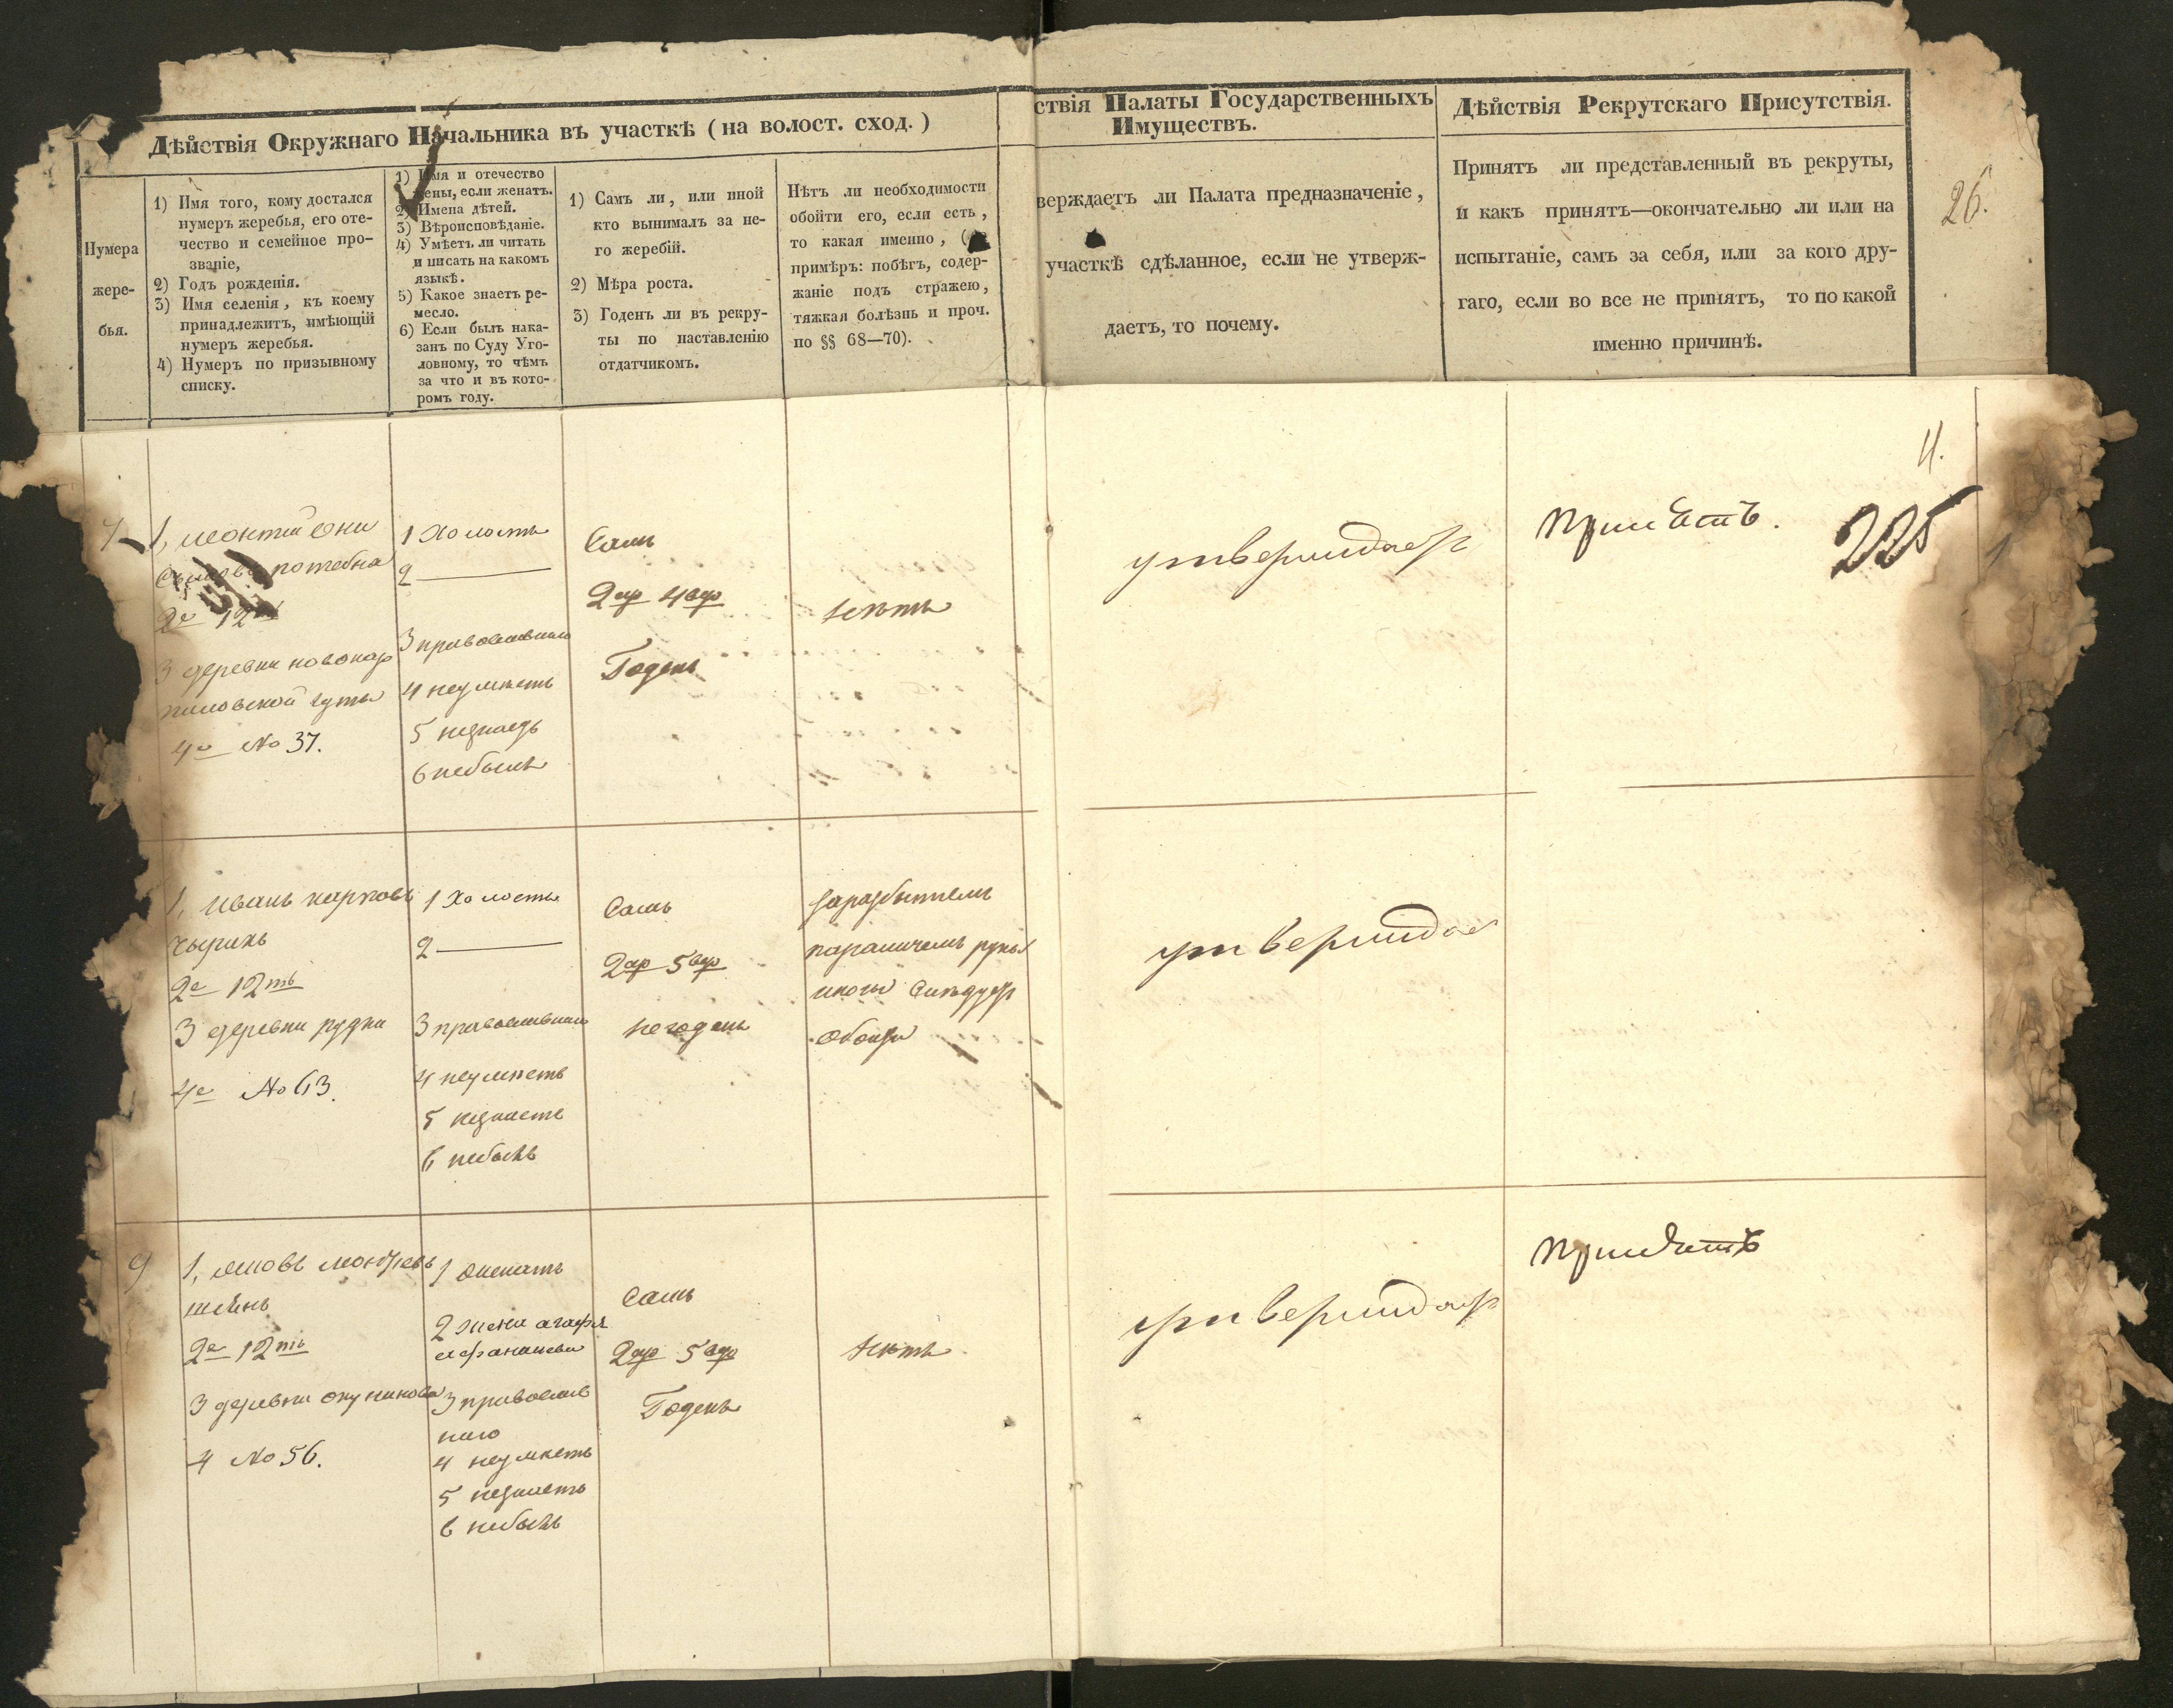 26.
Дѣйствія Окружнаго Начальника въ участкѣ (на волост. сход.)
ствія Палаты Государственныхъ
Имуществъ.
Дѣйствія Рекрутскаго Присутствія.
Нумера
жере-
бья.
1) Имя того, кому достался
нумеръ жеребья, его оте-
чество и семейное про-
званіе,
2) Годъ рожденія.
3) Имя селенія, къ коему
принадлежитъ, имѣющій
нумеръ жеребья.
4) Нумеръ по призывному
списку.
1) Имя и отечество
жены, если женатъ.
2) Имена дѣтей.
3) Вѣроисповѣданіе.
4) Умѣетъ ли читать
и писать на какомъ
языкѣ.
5) Какое знаетъ ре-
месло.
6) Если былъ нака-
занъ по Суду Уго-
ловному, то чѣмъ
за что и въ кото-
ромъ году.
1) Самъ ли, или иной
кто вынималъ за не-
го жеребій.
2) Мѣра роста.
3) Годенъ ли въ рекру-
ты по наставленію
отдатчикомъ.
Нѣтъ ли необходимости
обойти его, если есть,
то какая именно,
примѣръ: побѣгъ, содер-
жаніе подъ стражею,
тяжкая болѣзнь и проч.
по §§ 68—70).
верждаетъ ли Палата предназначеніе,
участкѣ сдѣланное, если не утверж-
даетъ, то почему.
Принятъ ли представленный въ рекруты,
и какъ принятъ—окончательно ли или на
испытаніе, самъ за себя, или за кого дру-
гаго, если во все не принятъ, то по какой
именно причинѣ.
1, леонтій они
потебна
2е 12
3 деревни новокар
пиловской гуты
4е No 37.
1 Холостъ
2 —
3 православнаго
4 неумѣетъ
5 незнаетъ
6 небылъ
Самъ
2 ар 4 вер
Годенъ
Нѣтъ
утверждаетъ
Принятъ.
225
1, иванъ карповъ
2е 12ть
3 деревни рудни
4е No 63.
1 Холостъ
2 —
3 православнаго
4 неумѣетъ
5 незнаетъ
6 небылъ
Самъ
2 ар 5 вер
негоденъ
параличемъ руки
иноги Слѣдуетъ
обойти
утверждае
9
1, яковъ
2е 12ть
3 деревни окуниново
4 No 56.
1 Женатъ
2 жена агафія
3 православ
наго
4 неумѣетъ
5 незнаетъ
6 небылъ
Самъ
2 ар 5 вер
Годенъ
Нѣтъ
утверждаетъ
Принятъ